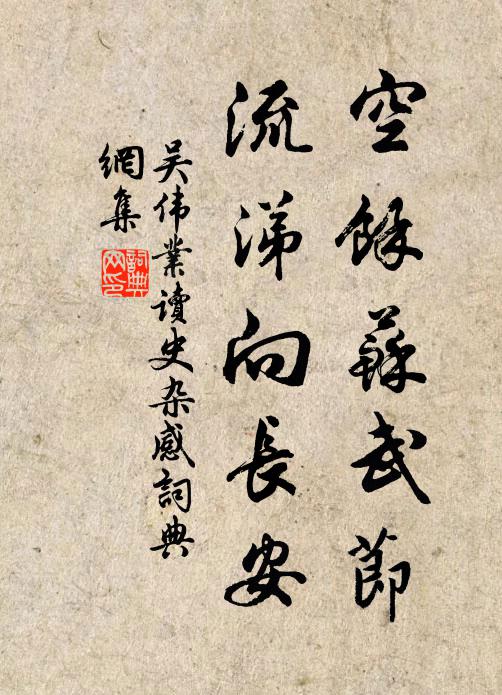 空餘蘇武節
流涕向長安
吴伟業讀史杂感詞典
網集
詞典
网印